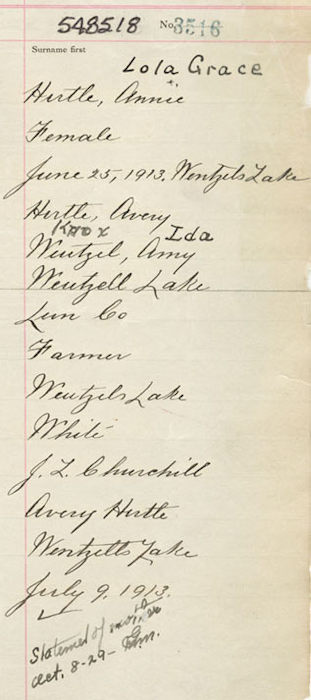 548518 No. 3516
Surname first
Lola Grace
Hirtle, Annie
Female
June 25, 1913. Wentzels Lake
Hirtle, Avery
Knox Ida
Wentzel, Amy
Wentzell Lake
Lun Co
Farmer
Wentzels Lake
White
J. L. Churchill
Avery Hirtle
Wentzells Lake
July 9. 1913.
Statement of
Oct. 8-29-